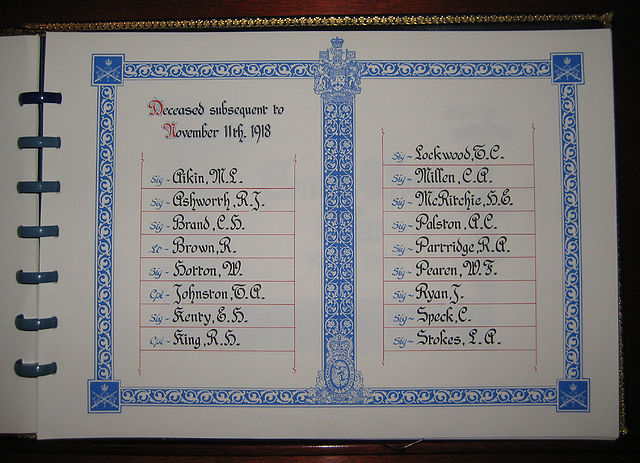 Deceased subsequent to
November 11th, 1918
Sig ~ Aikin, M. L.
Sig ~ Ashworth, R. J.
Sig ~ Brand, C. H.
Lc ~ Brown, R.
Sig ~ Horton, W.
Cpl ~ Johnston, T. A.
Sig ~ Kenty, E. H.
Cpl ~ King, R. H.
Sig ~ Lockwood, T. C.
Sig ~ Millen, C. A.
Sig ~ McRitchie, H. E.
Sig ~ Palston, A. C.
Sig ~ Partridge R. A.
Sig ~ Pearen, W. F.
Sig ~ Ryan, J.
Sig ~ Speck, C.
Sig ~ Stokes, L. A.